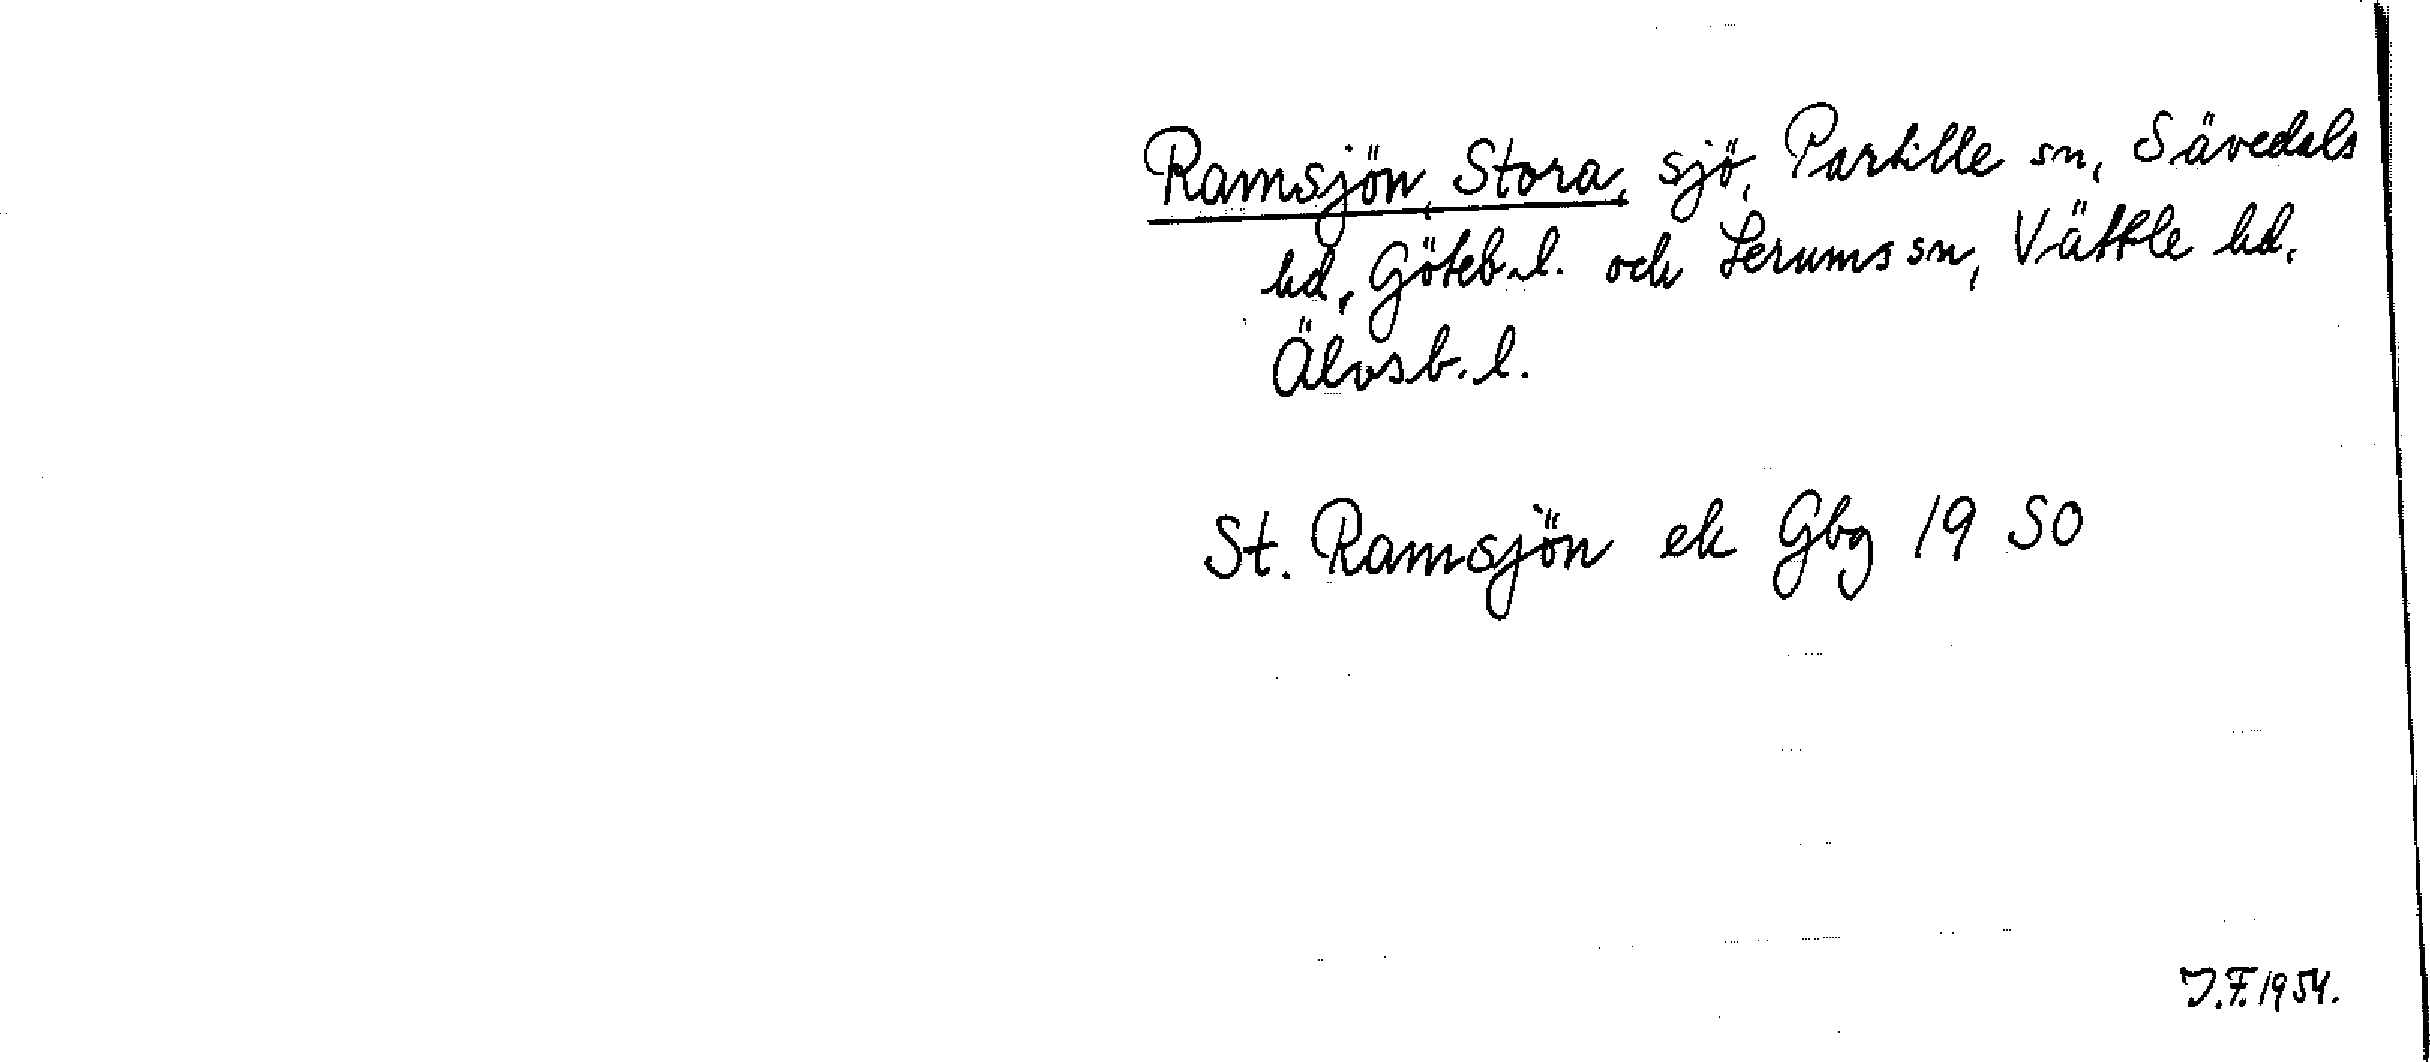 Ramsjön, Stora, sjö, Partille sn, Sävedals
hd, Göteb. l. och Lerums sn, Vättle hd.
Älvsb. l.
St. Ramsjön ek Gbg 19 SO
J.F. 1954.